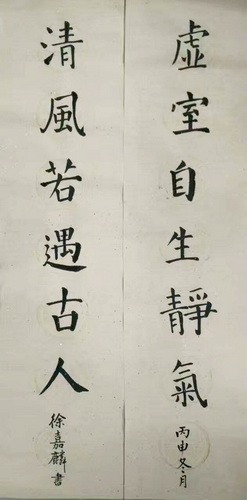 虛室自生靜氣
丙申冬月
清風若遇古人
徐嘉麟書